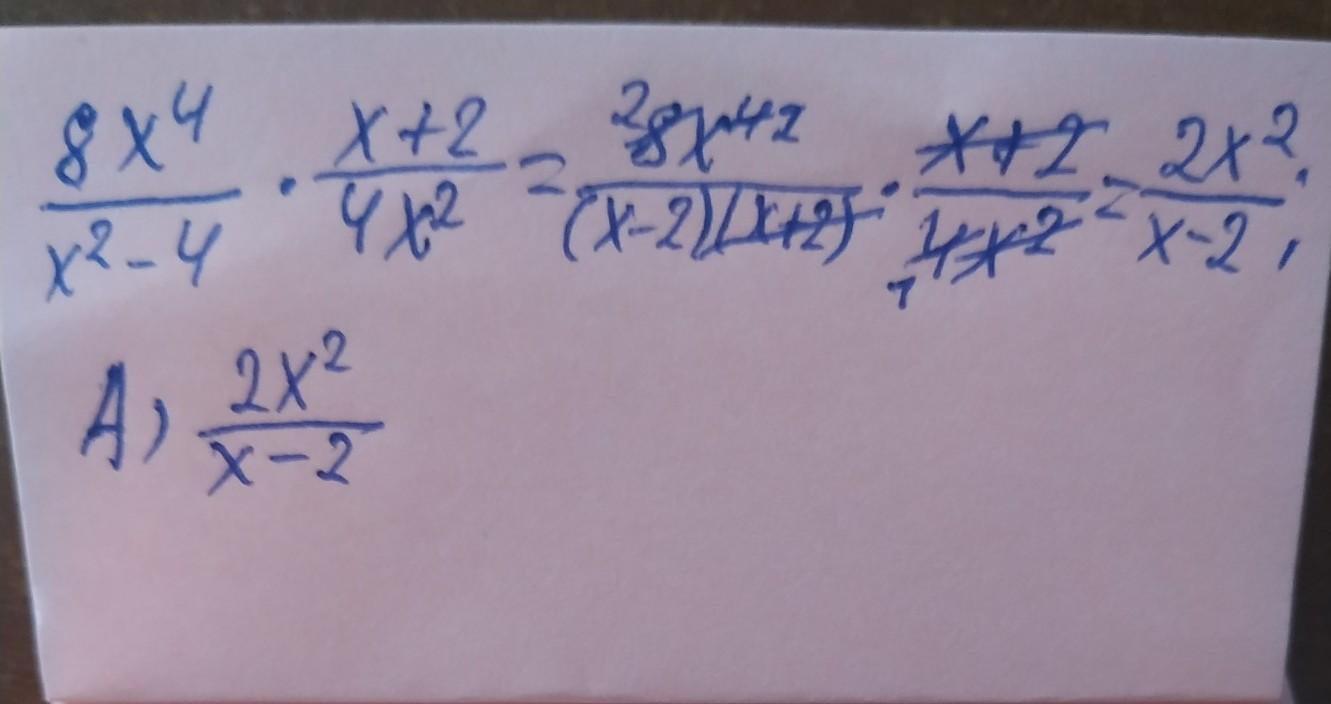 8x⁴/(x²-4) · (x+2)/(4x²) = ²8x⁴²/((x-2)(x+2)) · (x+2)/(₁4x²) = 2x²/(x-2);
A) 2x²/(x-2)